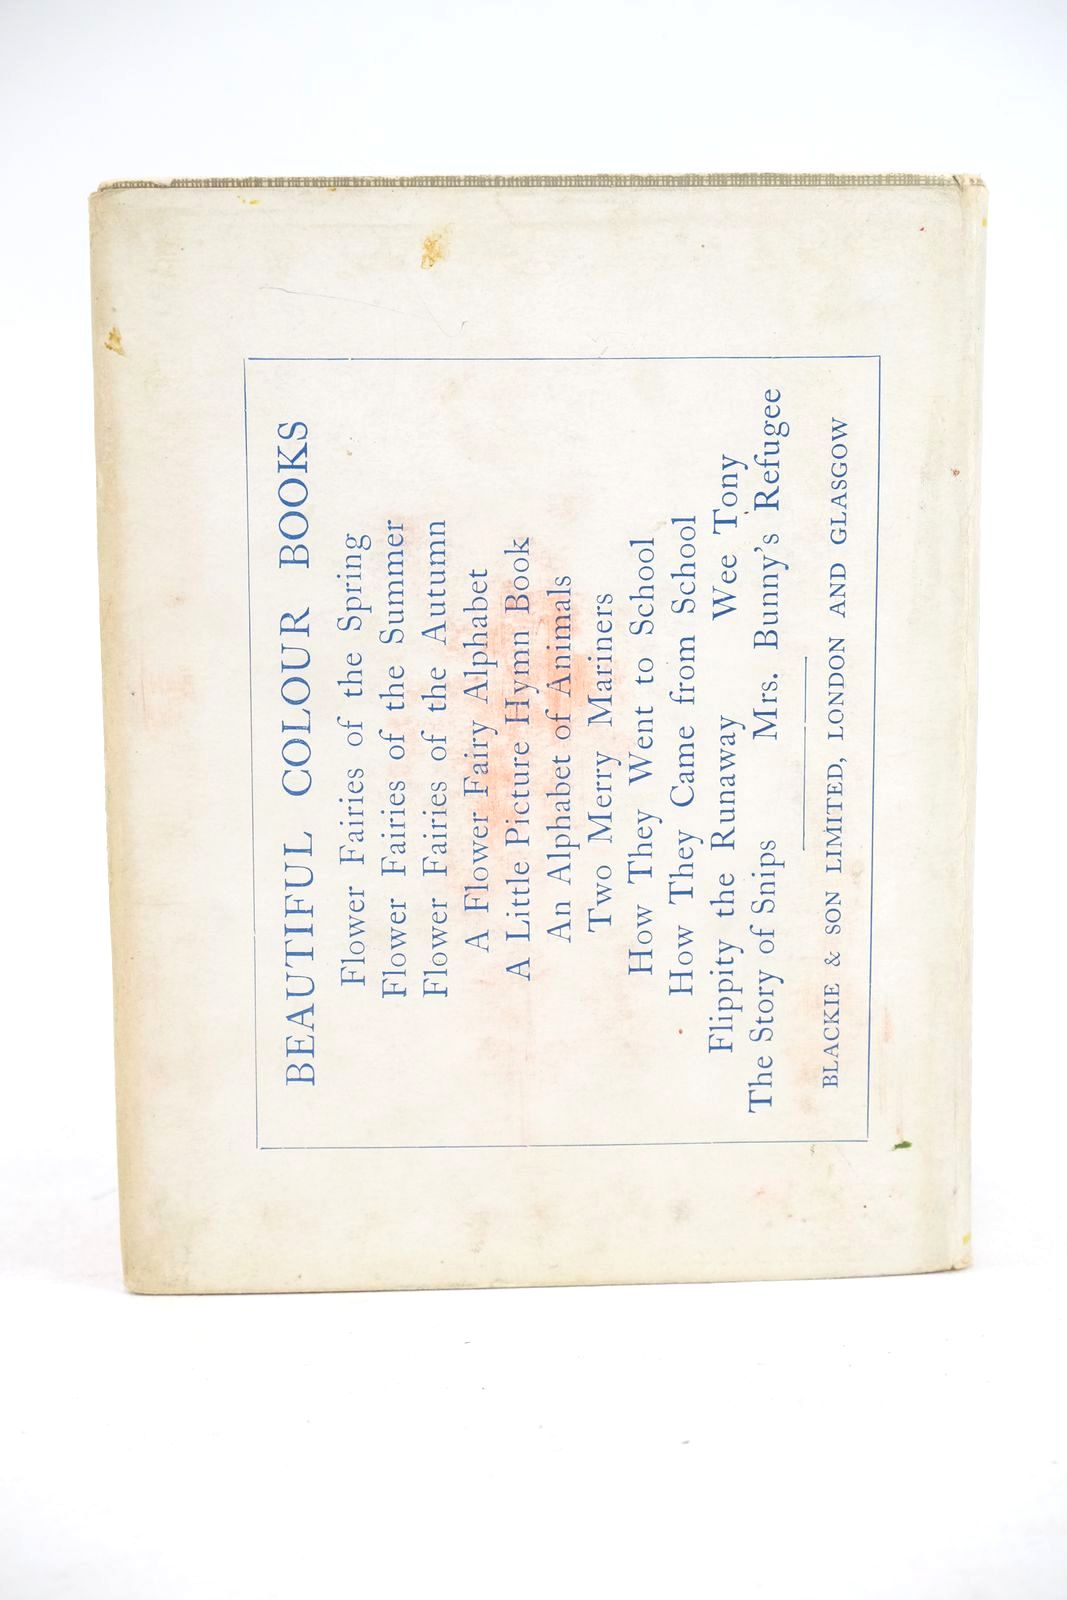 BEAUTIFUL COLOUR BOOKS
Flower Fairies of the Spring
Flower Fairies of the Summer
Flower Fairies of the Autumn
A Flower Fairy Alphabet
A Little Picture Hymn Book
An Alphabet of Animals
Two Merry Mariners
How They Went to School
How They Came from School
Flippity the Runaway Wee Tony
The Story of Snips Mrs. Bunny's Refugee
BLACKIE & SON LIMITED, LONDON AND GLASGOW